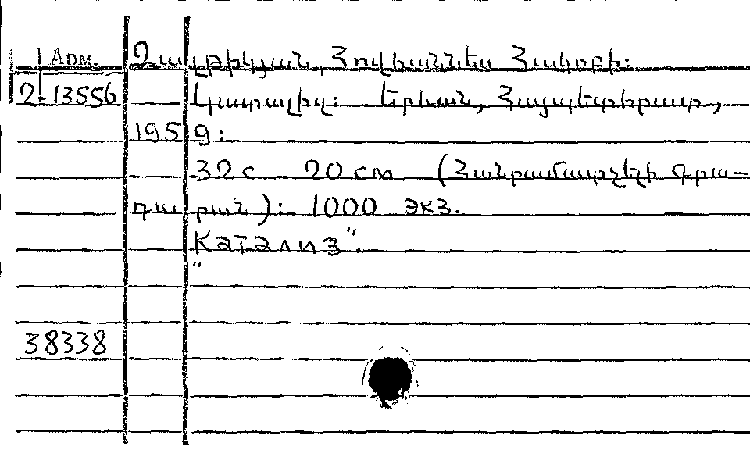 Арм. Չալթիկյան, Հովհաննես Հակոբի:
2-13556 Կատալիզ: Երևան, Հայպետհրատ,
1959:
32 с 20 см (Հանրամատչելի գրա-
դարան): 1000 экз.
"Катализ".
38338